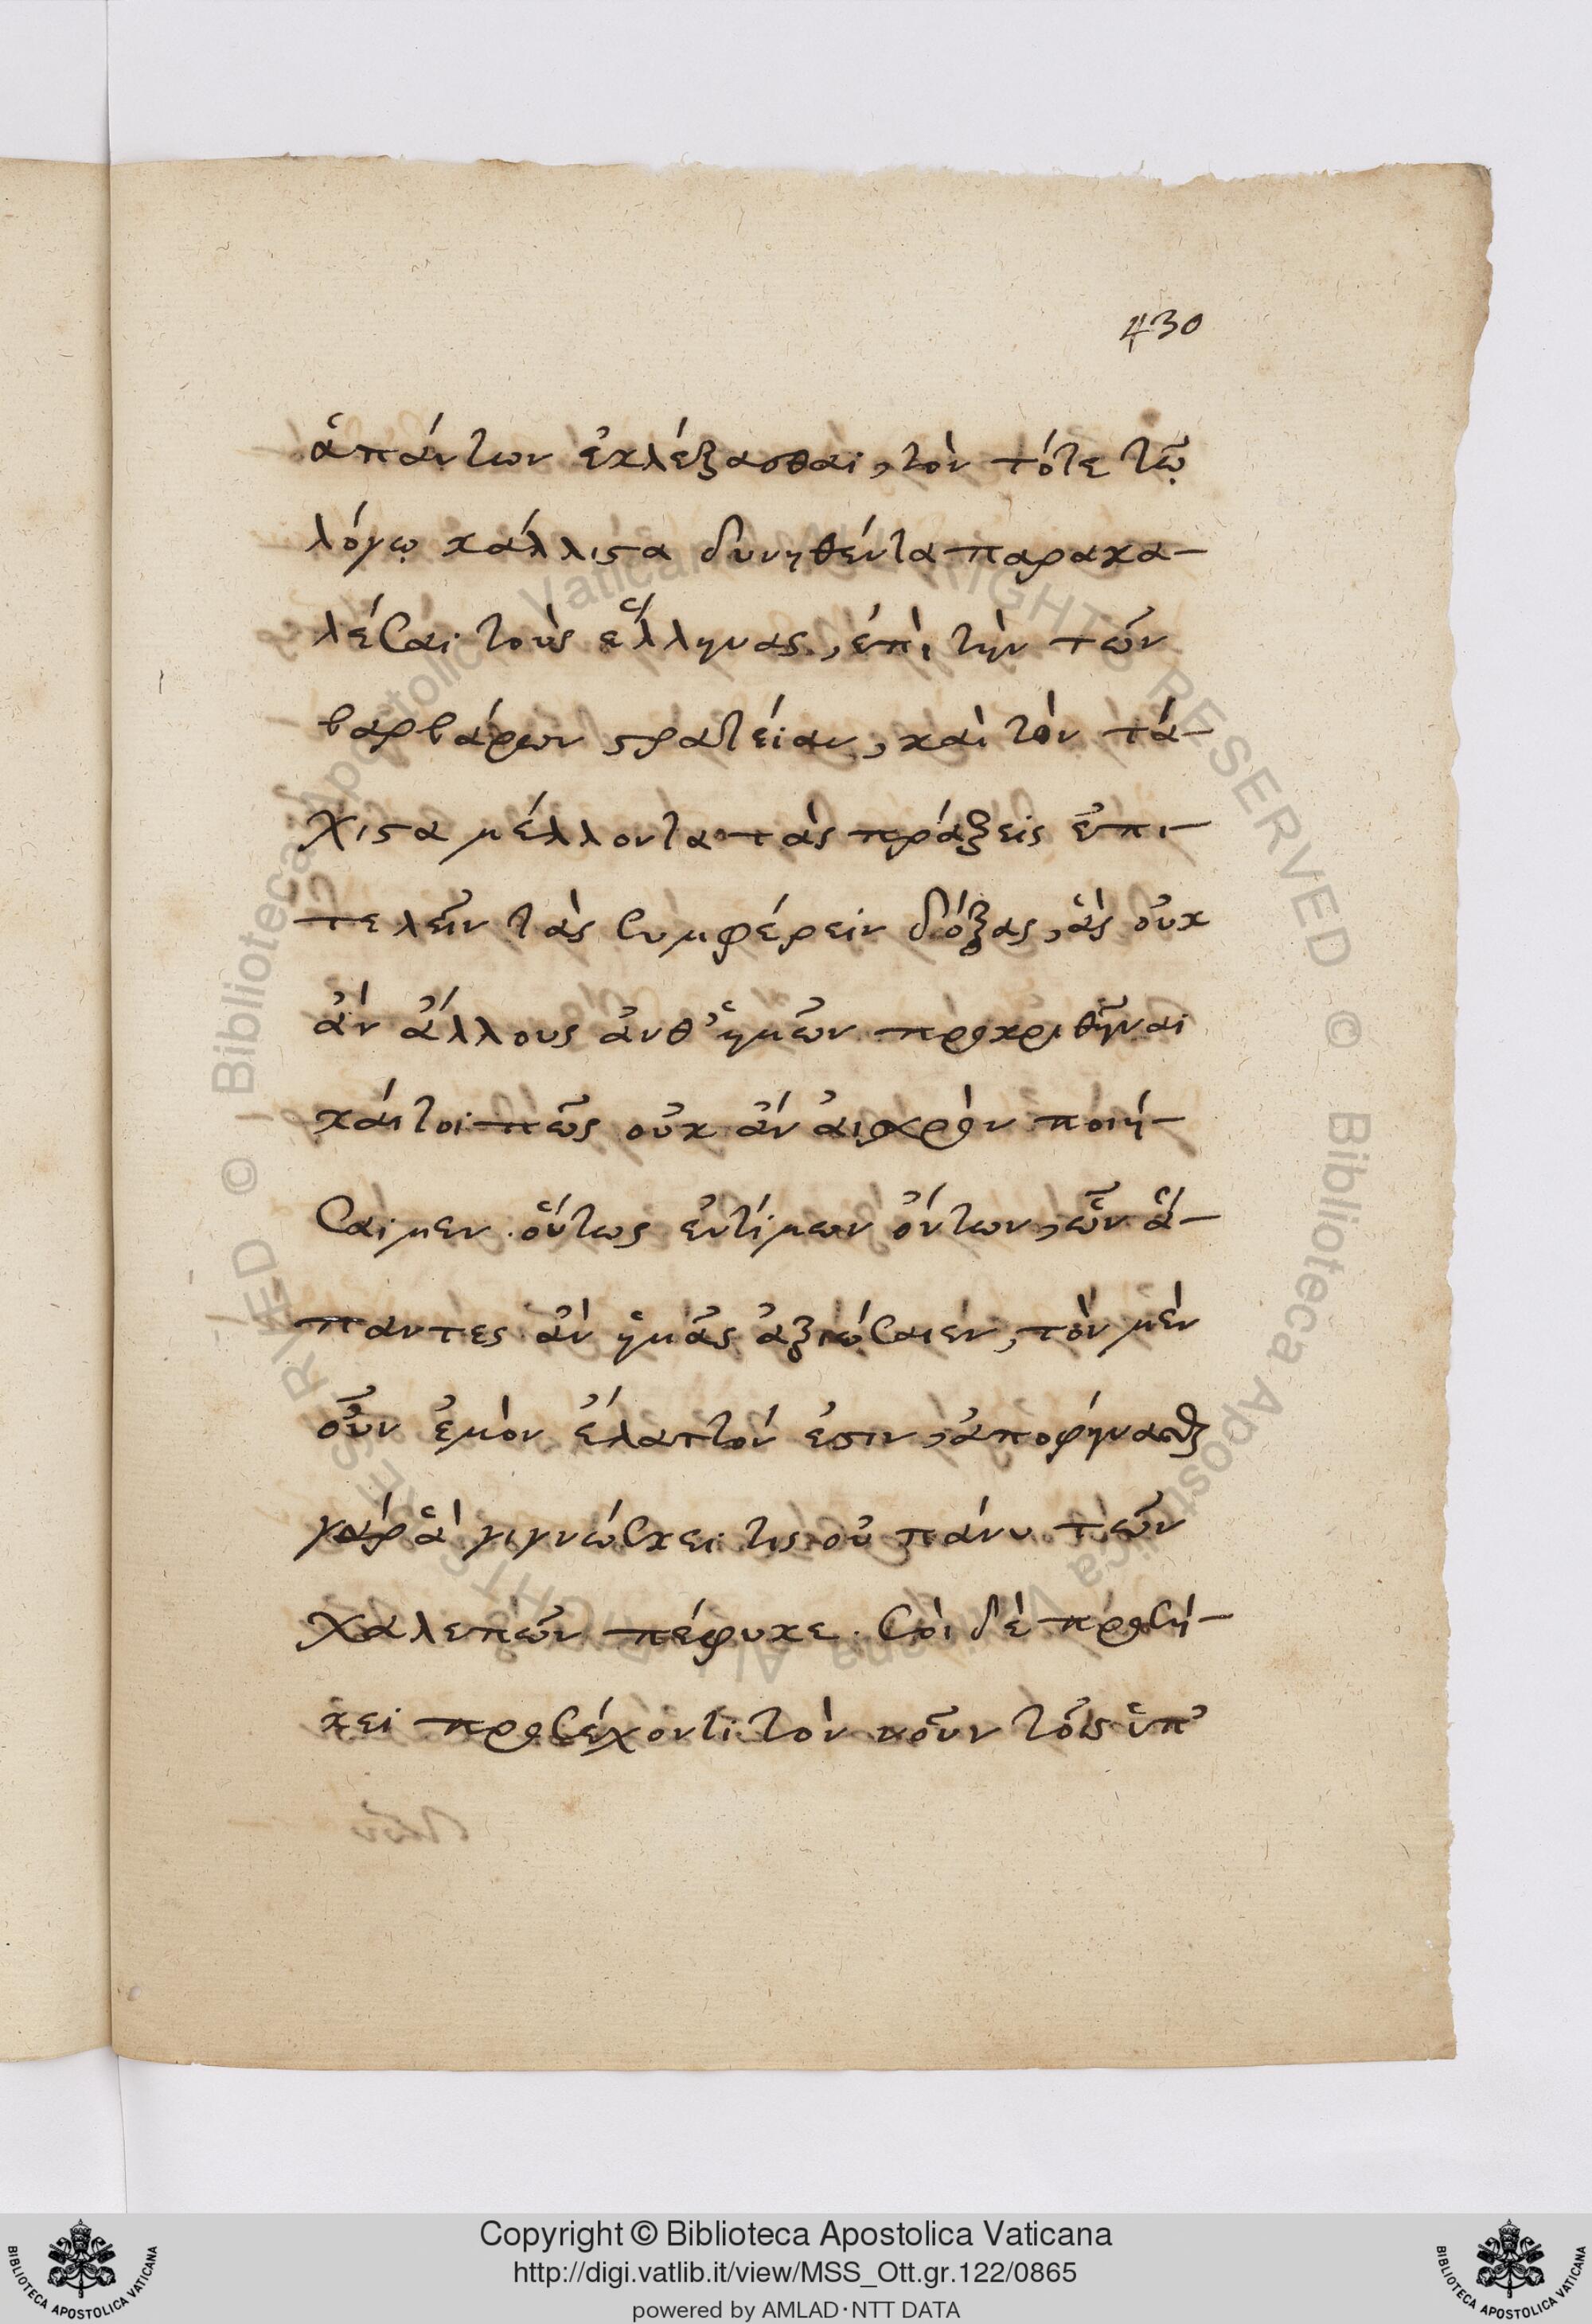 430
ἁπάντων ἐκλέξασθαι, τὸν τότε τῷ
λόγῳ κάλλιστα δυνηθέντα παρακα-
λέσαι τοὺς ἕλληνας, ἐπὶ τὴν τῶν
βαρβάρων στρατείαν, καὶ τὸν τά-
χιστα μέλλοντα τὰς πράξεις ἐπι-
τελεῖν τὰς συμφέρειν δόξας, ἃς οὐκ
ἂν ἄλλους ἀνθ' ἡμῶν προκριθῆναι
καίτοι πῶς οὐκ ἂν αἰσχρὸν ποιή-
σαιμεν οὕτως ἐντίμων ὄντων, ὧν ἅ-
παντες ἂν ἡμᾶς ἀξιώσαιεν, τὸν μὲν
οὖν ἐμὸν ἔλαττόν ἐστιν, ἀποφήνασθαι
γὰρ ἃ γιγνώσκει τις οὐ πάνυ τῶν
χαλεπῶν πέφυκε. Σοὶ δὲ προσή-
κει προσέχοντι τὸν νοῦν τοῖς ὑπ'
© Biblioteca Apostolica Vaticana ALL RIGHTS RESERVED © Biblioteca Apostolica Vaticana ALL RIGHTS RESERVED
Copyright © Biblioteca Apostolica Vaticana
http://digi.vatlib.it/view/MSS_Ott.gr.122/0865
powered by AMLAD·NTT DATA
BIBLIOTECA APOSTOLICA VATICANA
BIBLIOTECA APOSTOLICA VATICANA